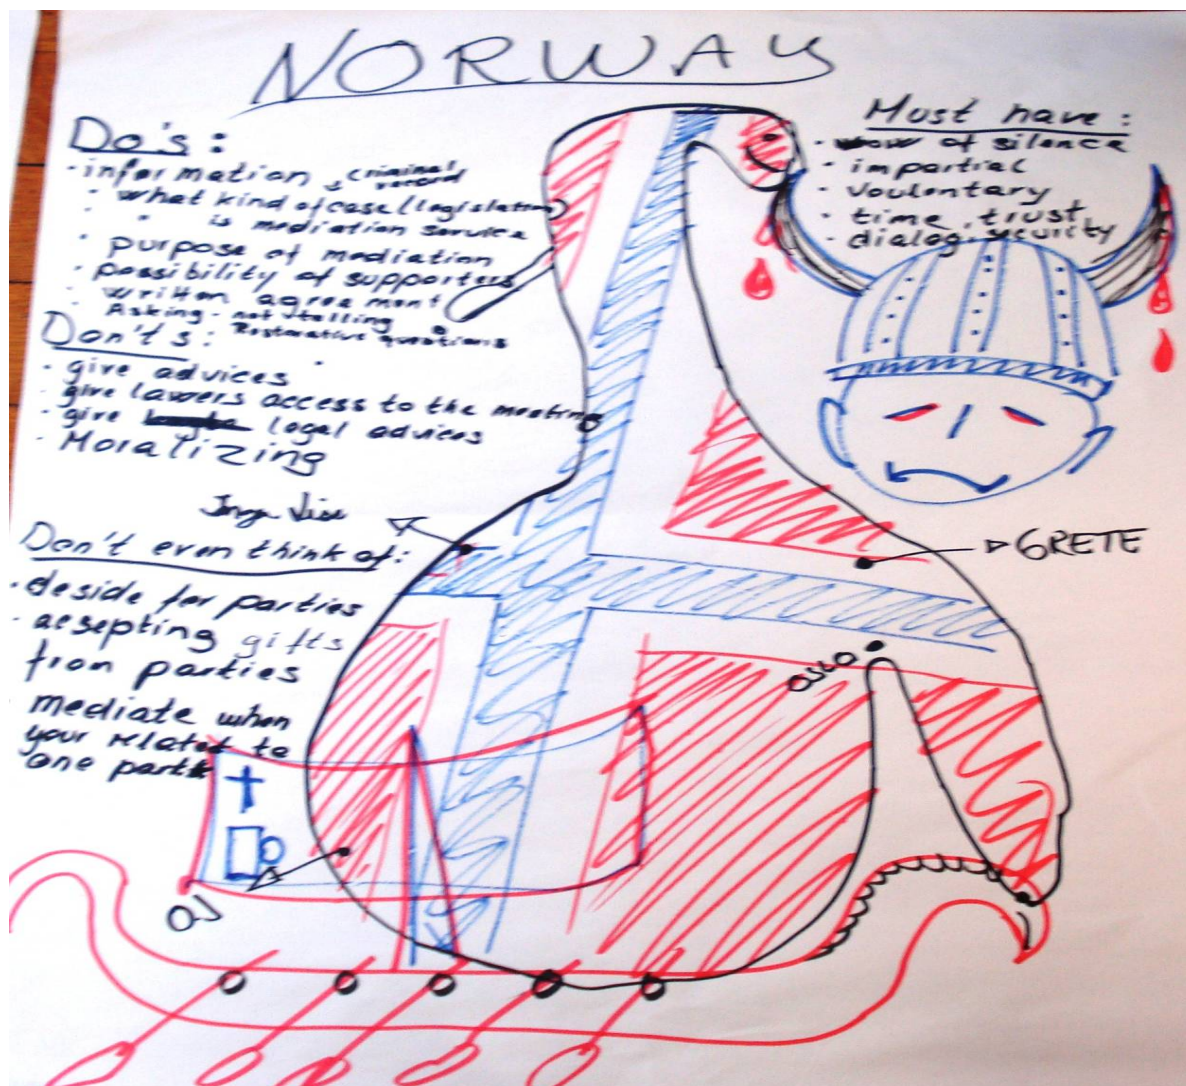 NORWAY
Do's:
· information criminal record
· what kind of case/legislation
· " is mediation service
· purpose of mediation
· possibility of supporters
· written agreement
· Asking - not telling
Restorative questions
Don't s:
· give advices
· give lawers access to the meeting
· give legal advices
· Moralizing
Don't even think of:
· deside for parties
· aesepting gifts
from parties
mediate when
your related to
one part
Must have:
· vow of silence
· impartial
· voulentary
· time, trust
· dialog, security
GRETE
OSLO